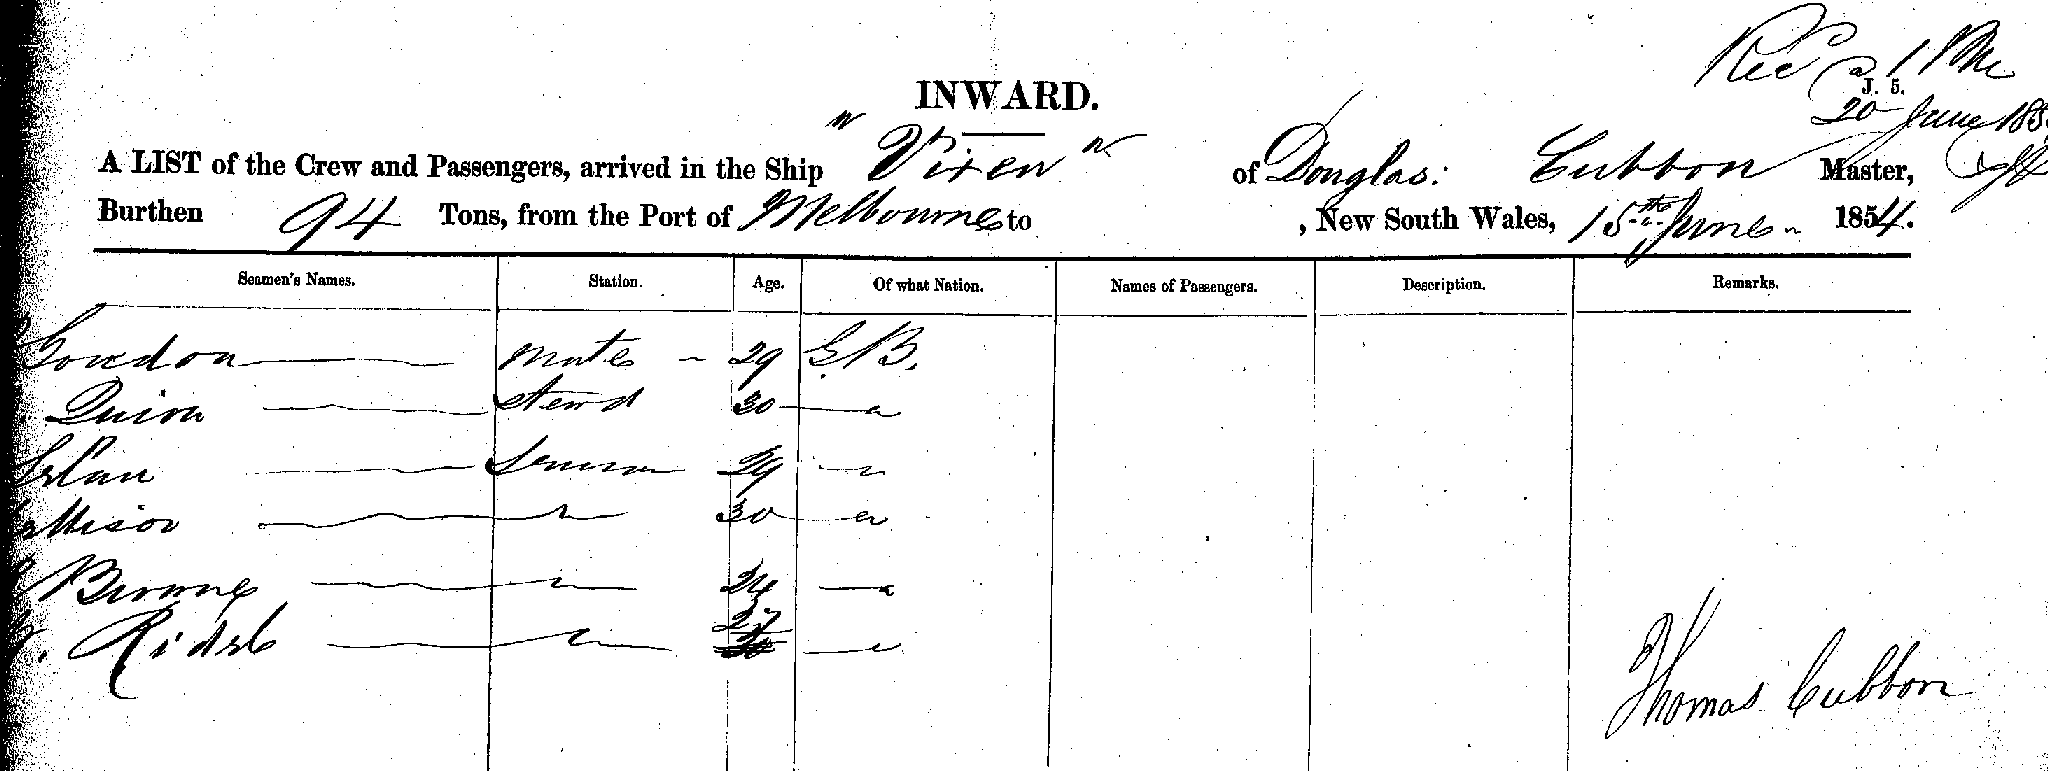 Rec at 1 PM
J. 5.
20 June 185
INWARD.
A LIST of the Crew and Passengers, arrived in the Ship "Vixen" of Douglas: Cubbon Master,
Burthen 94 Tons, from the Port of Melbourne to , New South Wales, 15th June 1854.
Seamen's Names. Station. Age. Of what Nation. Names of Passengers. Description. Remarks.
mate 29 G.B.
Quinn stewd 30 "
Seaman 29 "
" 30 "
Browne " "
" 27 "
Thomas Cubbon